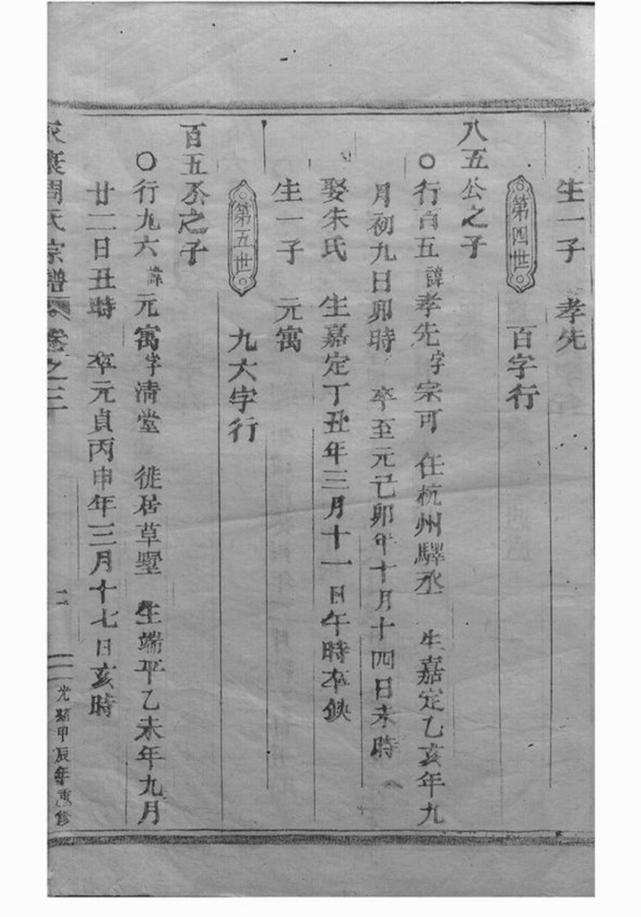 生一子 孝先
第四世 百字行
八五公之子
○行百五諱孝先字宗可 任杭州驛丞 生嘉定乙亥年九
月初九日卯時 卒至元己卯年十月十四日未時
娶朱氏 生嘉定丁丑年三月十一日午時卒缺
生一子 元寓
第五世 九六字行
百五丞之子
○行九六諱元寓字清堂 徙居草墅 生端平乙未年九月
廿二日丑時 卒元貞丙申年三月十七日亥時
周氏宗譜 卷之三 二 光緒甲辰年重修